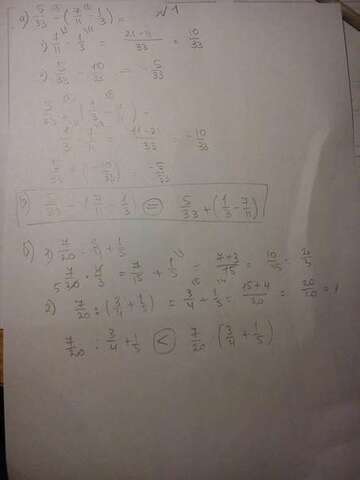 а) 5/33 - (7/11 - 1/3) = №1
1) 7/11 - 1/3 = 21-11/33 = 10/33
2) 5/33 - 10/33 = -5/33
5/33 + (1/3 - 7/11) =
1/3 - 7/11 = 11-21/33 = -10/33
5/33 + (-10/33) = -5/33
5/33 - (7/11 - 1/3) = 5/33 + (1/3 - 7/11)
б) 1) 7/20 : 3/4 + 1/5
= 7/15 + 1/5 = 7+3/15 = 10/15 =
2) 7/20 : (3/4 + 1/5) = 3/4 + 1/5 = 15+4/20 = 20/20 = 1
7/20 : 3/4 + 1/5 < 7/20 (3/4 + 1/5)